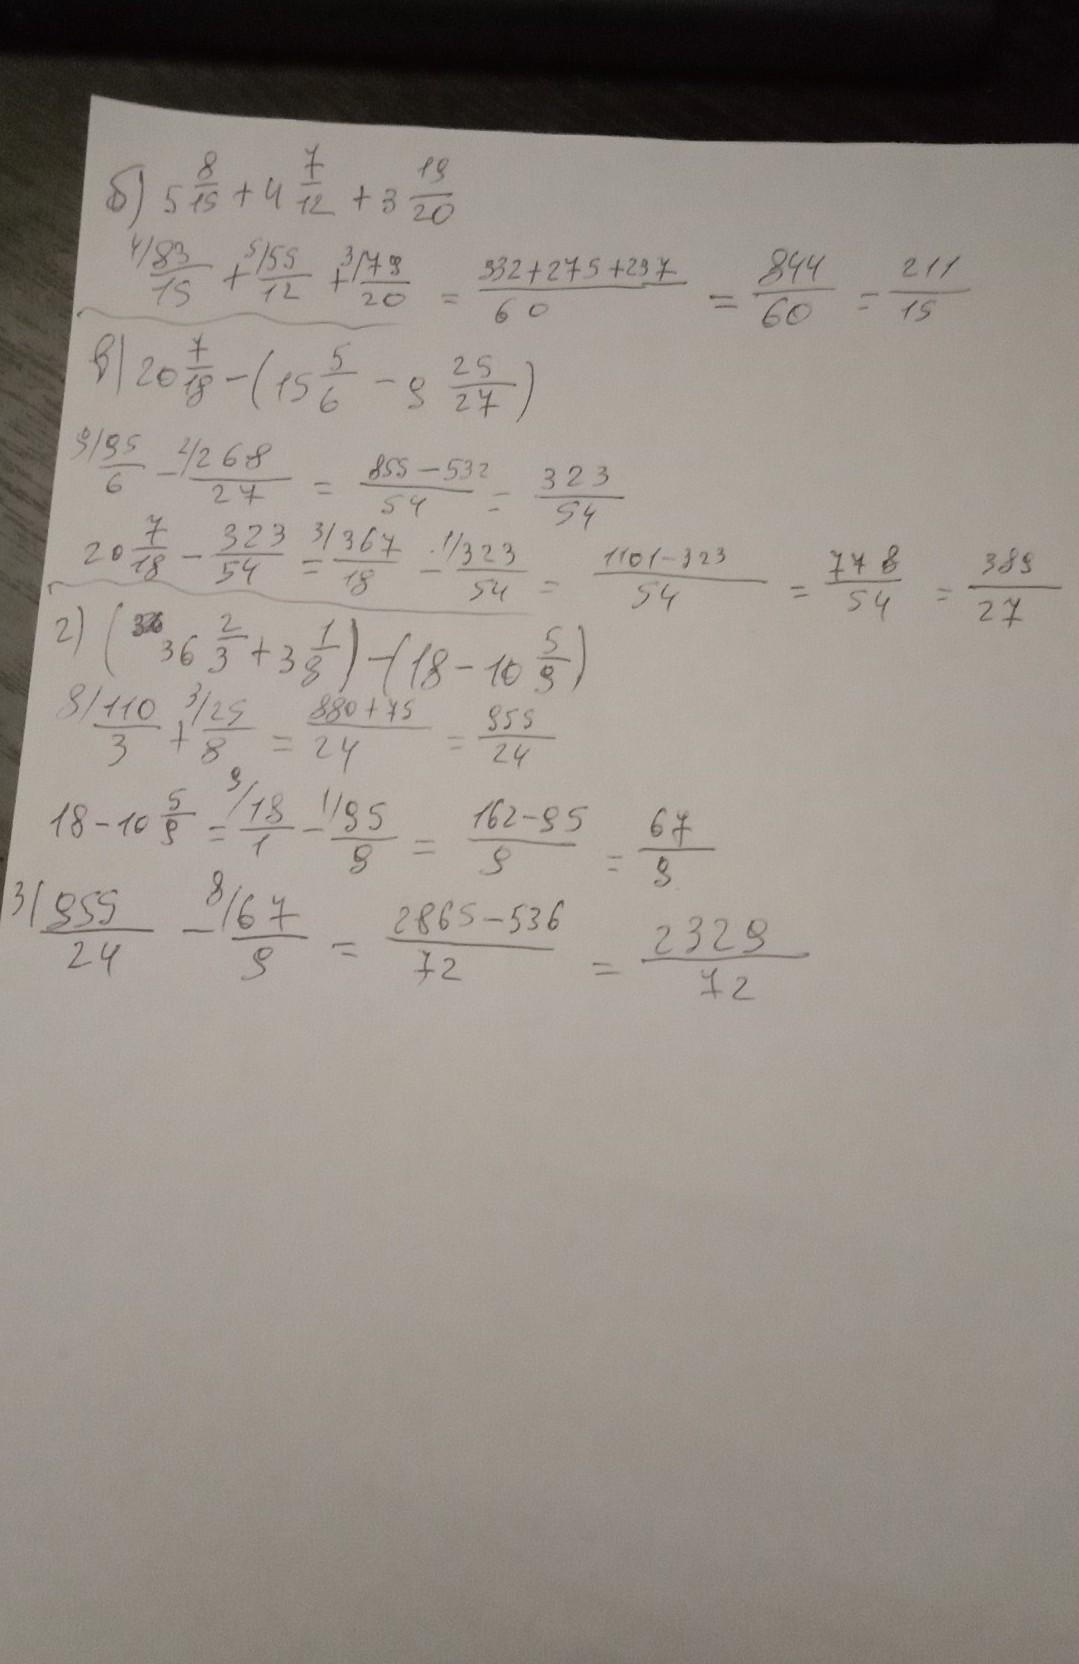 б) 5 8/15 + 4 7/12 + 3 19/20
4/ 83/15 + 5/ 55/12 + 3/ 79/20 = 332+275+237/60 = 844/60 = 211/15
в) 20 7/18 - (15 5/6 - 9 25/27)
9/ 95/6 - 2/ 268/27 = 855-532/54 = 323/54
20 7/18 - 323/54 = 3/ 367/18 - 1/ 323/54 = 1101-323/54 = 778/54 = 389/27
г) (36 2/3 + 3 1/8) - (18 - 10 5/9)
8/ 110/3 + 3/ 25/8 = 880+75/24 = 955/24
18 - 10 5/9 = 9/ 18/1 - 1/ 95/9 = 162-95/9 = 67/9
3/ 955/24 - 8/ 67/9 = 2865-536/72 = 2329/72